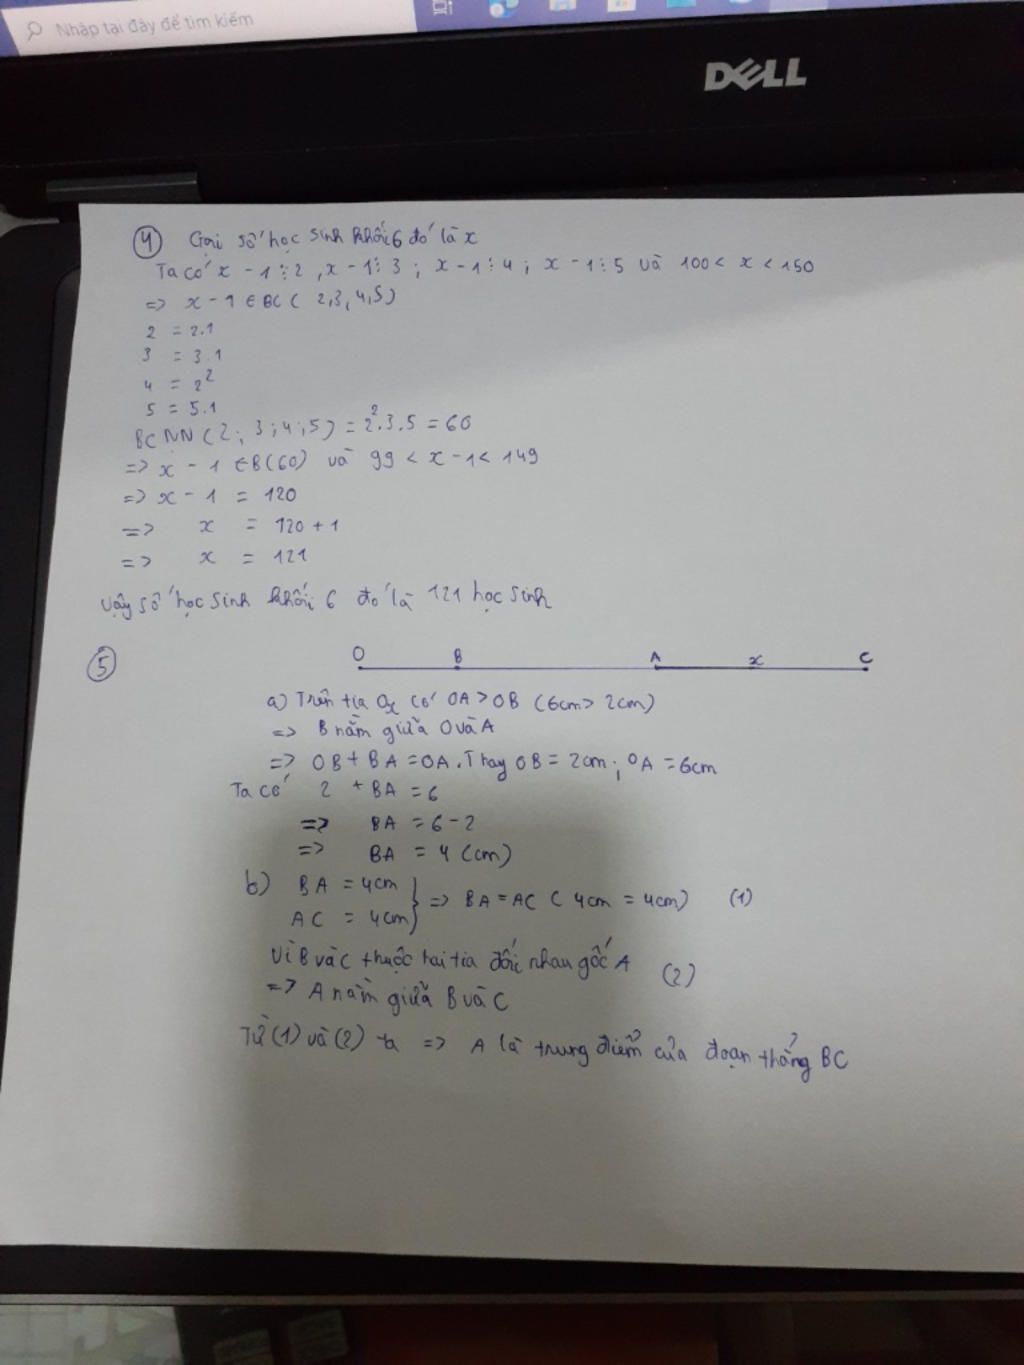 Nhập tại đây để tìm kiếm
DELL
④ Gọi số học sinh khối 6 đó là x
Ta có x - 1 ⋮ 2 , x - 1 ⋮ 3 ; x - 1 ⋮ 4 ; x - 1 ⋮ 5 và 100 < x < 150
=> x - 1 ∈ BC ( 2,3,4,5)
2 = 2.1
3 = 3.1
4 = 2²
5 = 5.1
BCNN (2 ; 3 ; 4 ; 5) = 2².3.5 = 60
=> x - 1 ∈ B(60) và 99 < x - 1 < 149
=> x - 1 = 120
=> x = 120 + 1
=> x = 121
Vậy số học sinh khối 6 đó là 121 học sinh
⑤
O B A x C
a) Trên tia Ox có OA > OB (6cm > 2cm)
=> B nằm giữa O và A
=> OB + BA = OA. Thay OB = 2cm ; OA = 6cm
Ta có 2 + BA = 6
=> BA = 6 - 2
=> BA = 4 (cm)
b) BA = 4cm
AC = 4cm } => BA = AC ( 4cm = 4cm) (1)
Vì B và C thuộc hai tia đối nhau gốc A
=> A nằm giữa B và C (2)
Từ (1) và (2) ta => A là trung điểm của đoạn thẳng BC